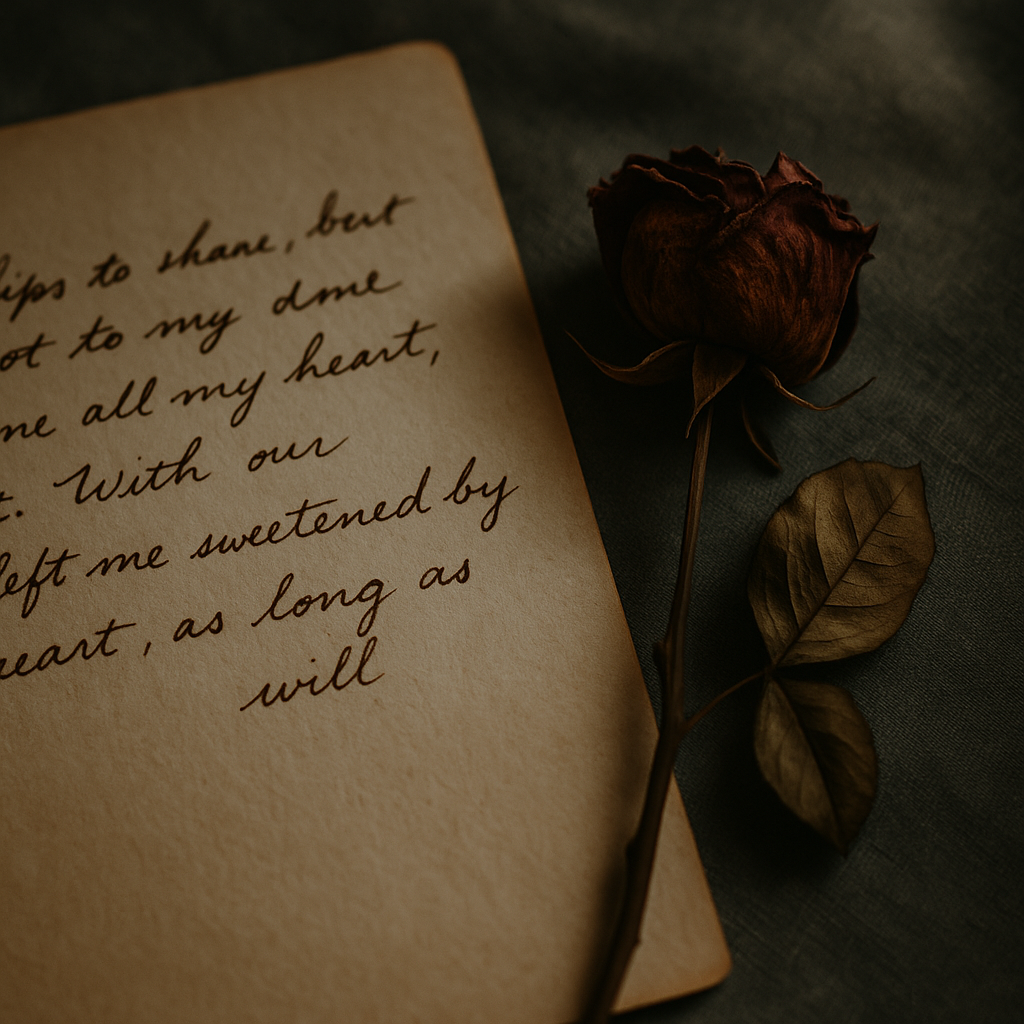 ips to share, but
ot to my dme
ne all my heart,
t. With our
left me sweetened by
eart, as long as
will